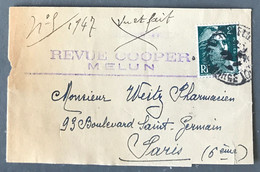 n° 5 1947
Vu et fait
REVUE COOPER
MELUN
RF
Monsieur Weitz Pharmacien
93 Boulevard Saint-Germain
Paris (6ème)